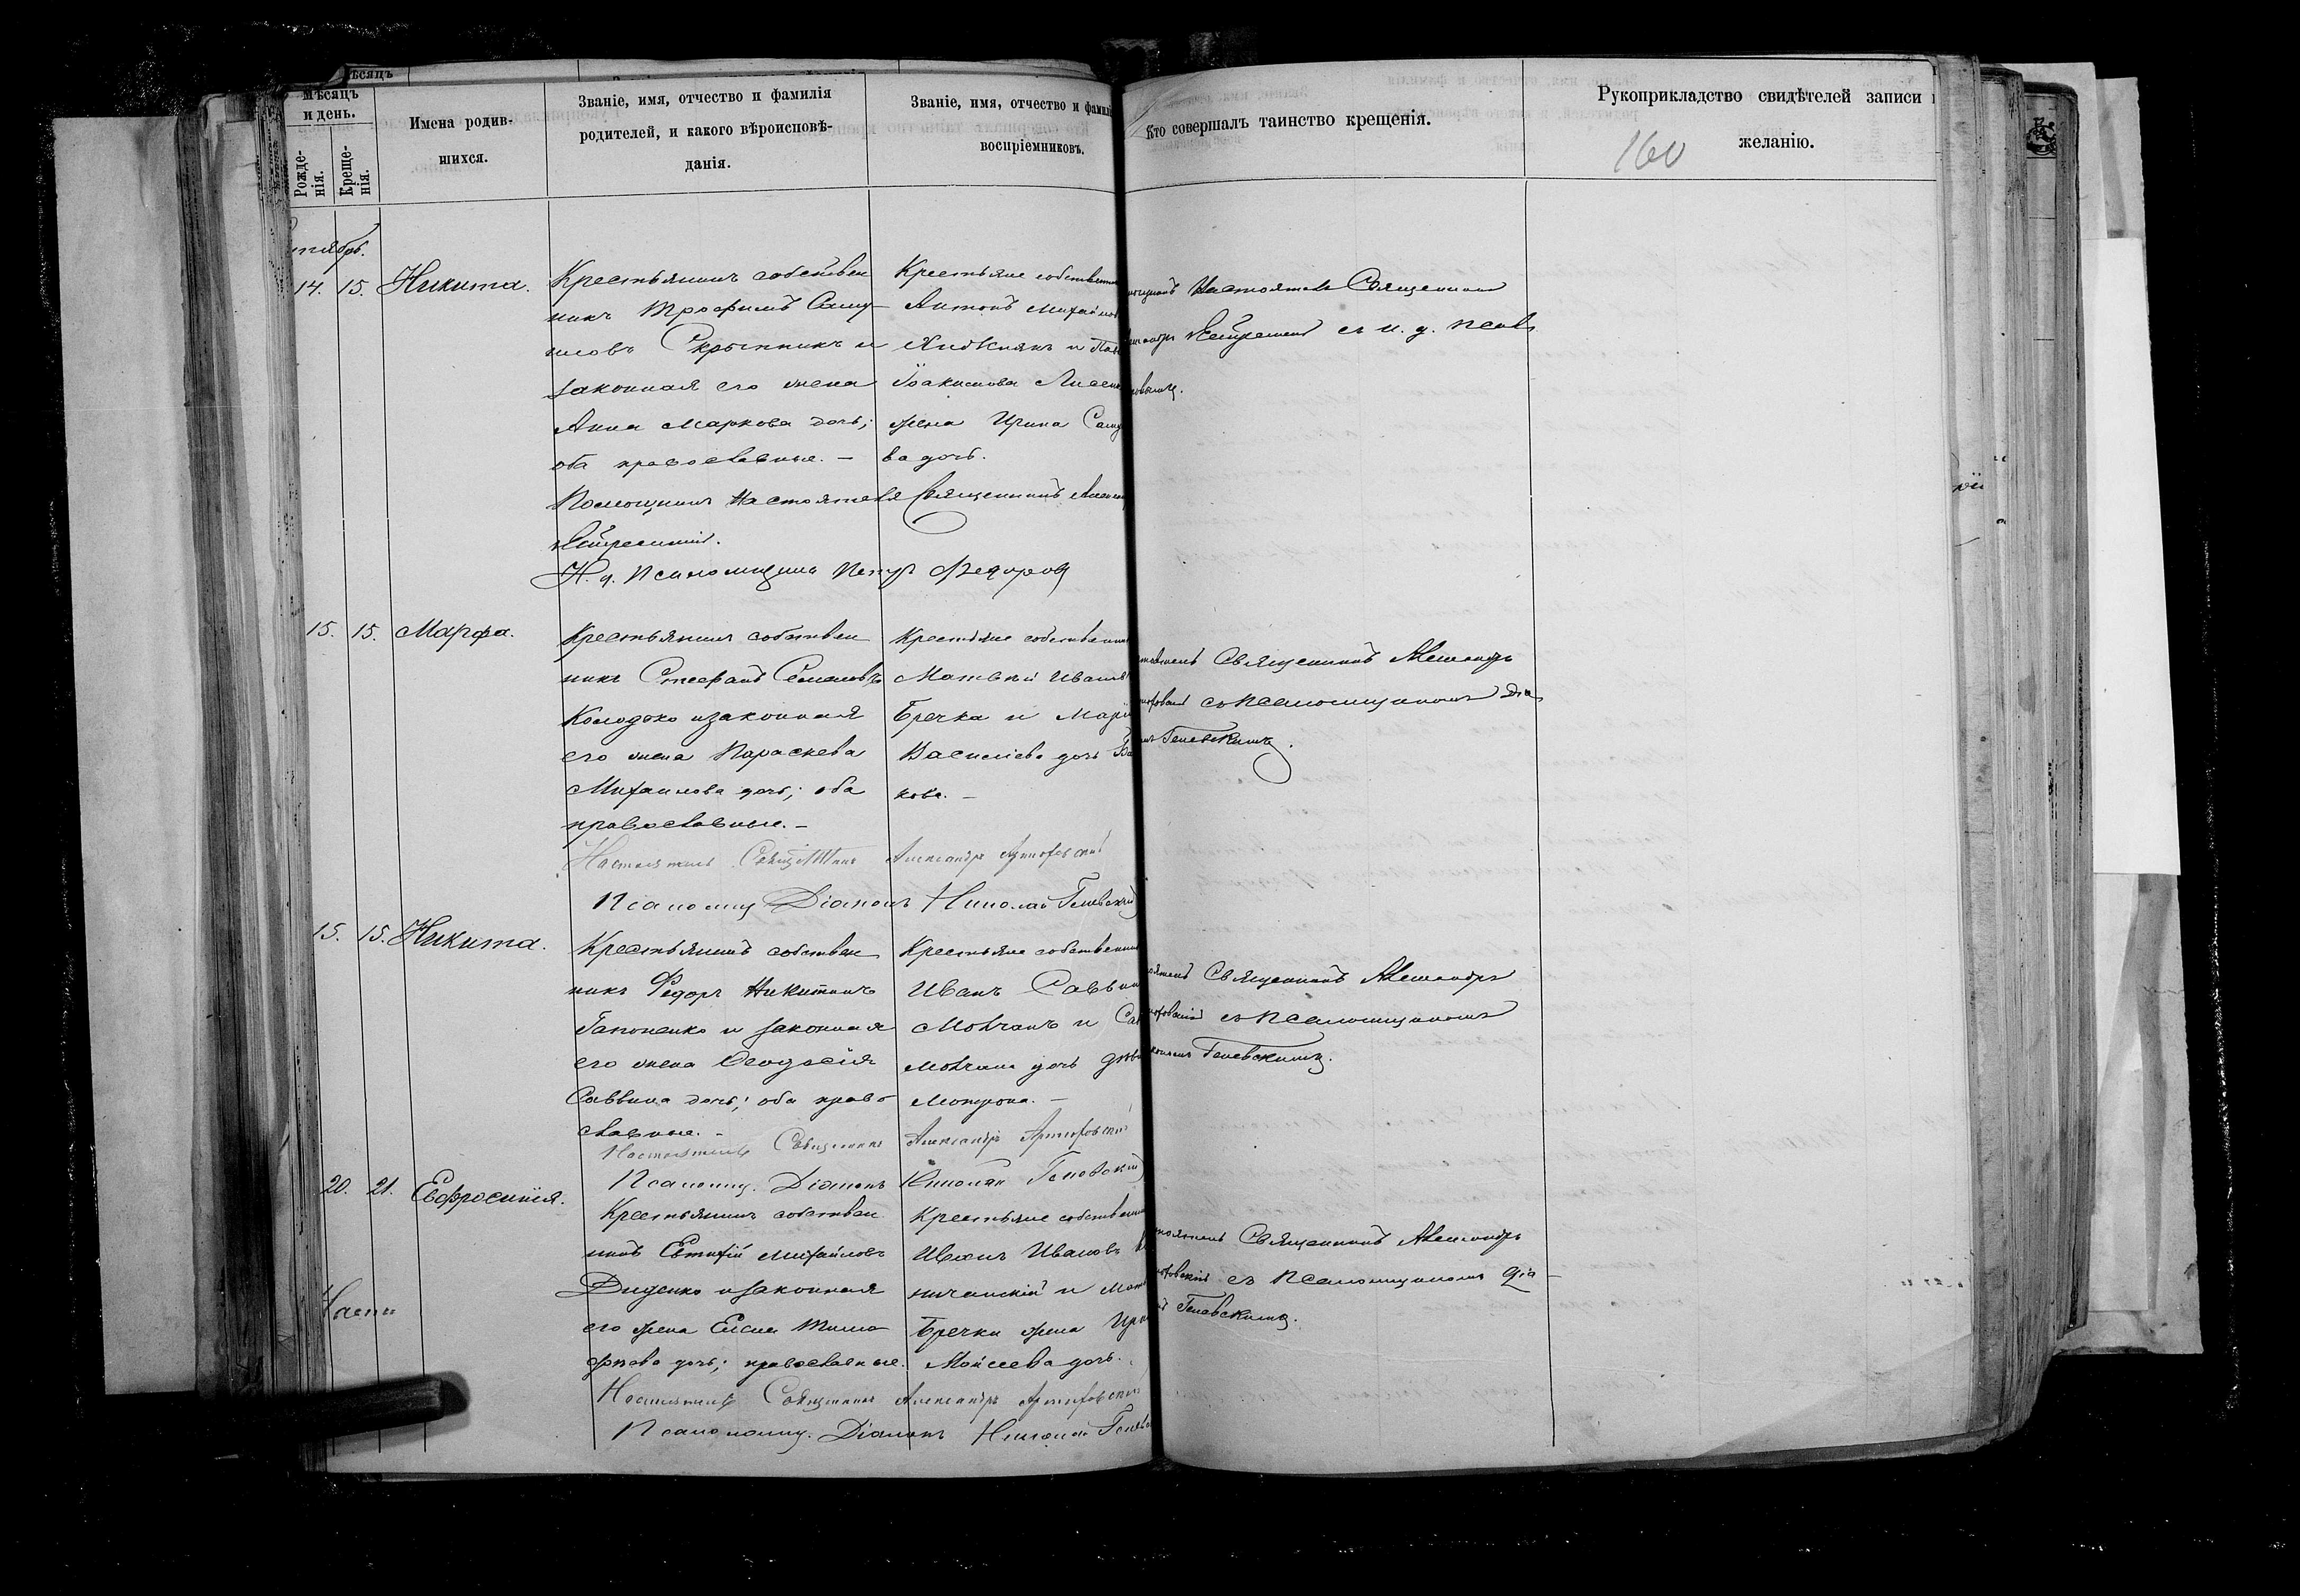 мѣсяцъ
Мѣсяцъ
и день.
Рожде-
нія.
Креще-
нія.
Имена родив-
шихся.
Званіе, имя, отчество и фамилія
родителей, и какого вѣроисповѣ-
данія.
Званіе, имя, отчество и фамилі
воспріемниковъ.
Кто совершалъ таинство крещенія.
Рукоприкладство свидѣтелей записи
желанію.
160
тябрь.
14. 15. Никита.
Крестьянинъ собствен
никъ Трофимъ Саму
иловъ Скрынникъ и
законная его жена
Анна Маркова дочь;
оба православные. —
Крестьяне собствен
Антонъ Михайлов
и
жена Ирина Саму
ва дочь.
Настоятель Священник
съ и. д. псал
Помощникъ Настоятеля Священникъ
И. д. Псаломщика Петръ Федоров
15. 15. Марфа.
Крестьянинъ собствен
никъ Стефанъ Семеновъ
Колодко и законная
его жена Параскева
Михаилова дочь; оба
православные. —
Крестьяне собственни
Матвѣй Иванов
Бречка и Марі
Василіева дочь
кова. —
Священникъ Александръ
съ псаломщикомъ Діа
Геневскимъ.
Настоятель Священникъ Александръ Артюховскій
Псаломщ Діаконъ Николай Геневскій
15. 15. Никита.
Крестьянинъ собствен
никъ Федоръ Никитинъ
Гапоненко и законная
его жена Феодосія
Саввина дочь; оба право
славные. —
Крестьяне собственни
Иванъ Саввин
Мовчанъ и Са
Мовчана дочь дѣви
Мотрона. —
Священникъ Александръ
съ псаломщикомъ
Геневскимъ.
Настоятель Священникъ Александръ Артюховскій
Псаломщ. Діаконъ Николай Геневскій
20. 21. Евфросинія.
Крестьянинъ собствен
никъ Евтихій Михайловъ
Диденко и законная
его жена Елена Тимо
фѣева дочь; православные.
Крестьяне собственни
Иванъ Ивановъ
ничанскій и Мат
Бречки жена Ири
Моисеева дочь.
Священникъ Александръ
съ псаломщикомъ Діа
Геневскимъ.
Насто
Настоятель Священникъ Александръ Артюховскій
Псаломщ. Діаконъ Николай Генев